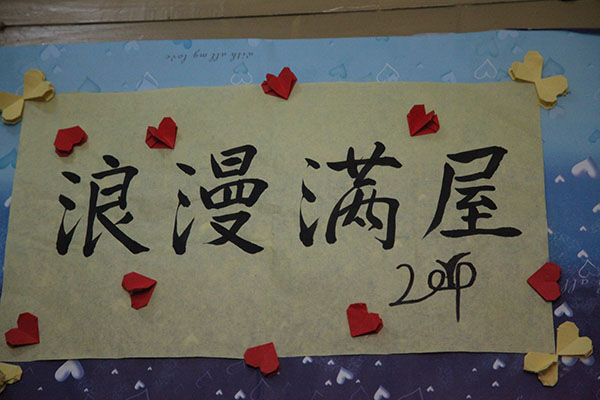 with all my love
浪漫满屋